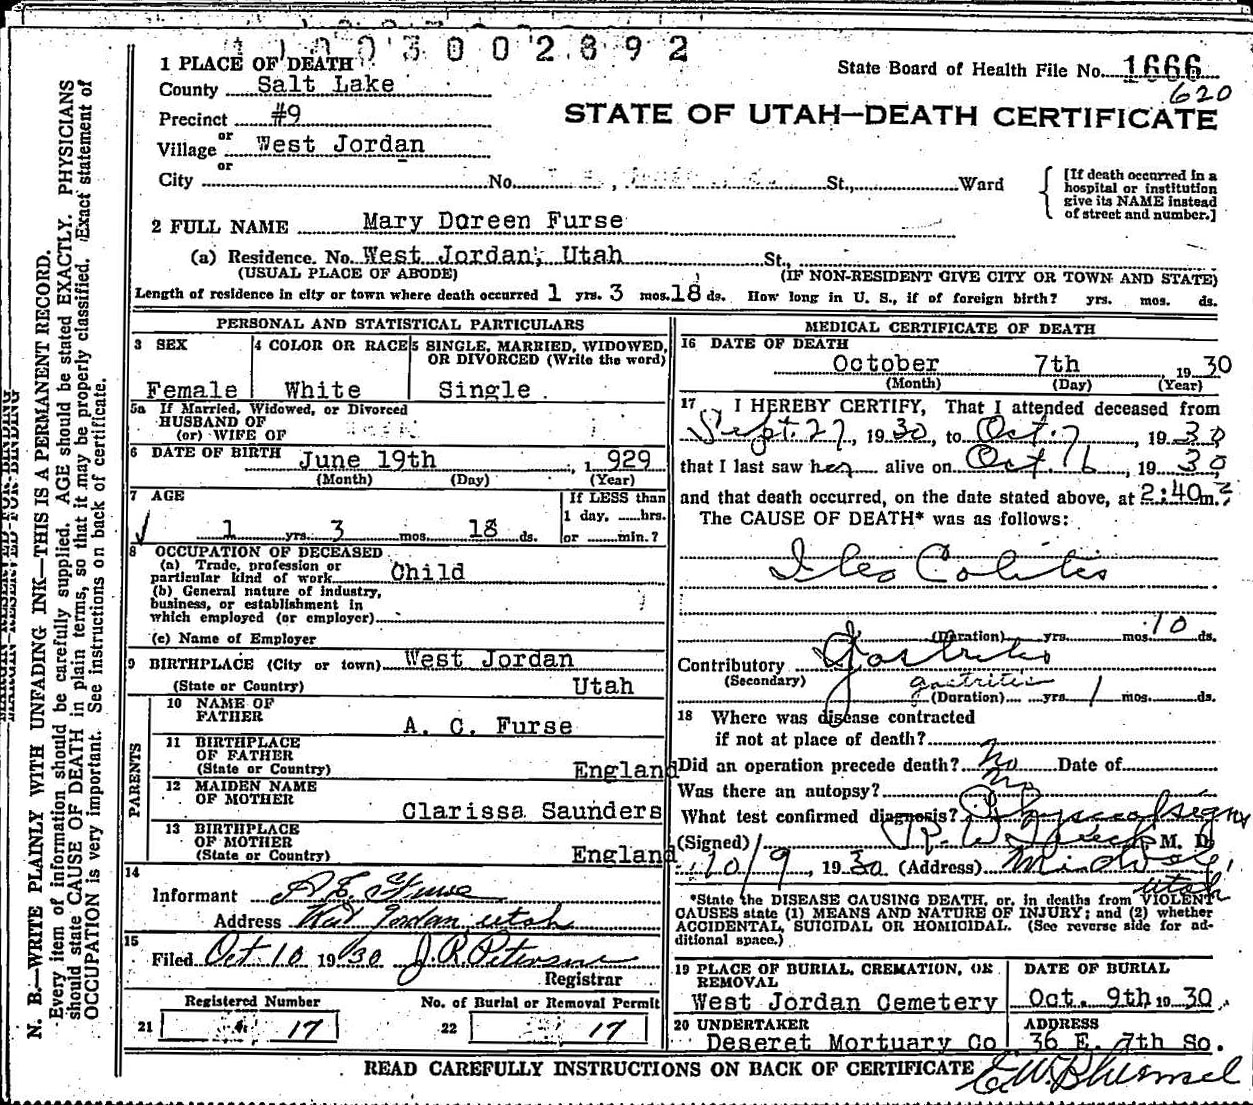 1 1 0 0 3 0 0 2 8 9 2
1 PLACE OF DEATH
State Board of Health File No. 1666
620
County Salt Lake
STATE OF UTAH—DEATH CERTIFICATE
Precinct #9
or
Village West Jordan
or
City No. St., Ward
[If death occurred in a
hospital or institution
give its NAME instead
of street and number.]
2 FULL NAME Mary Doreen Furse
(a) Residence. No. West Jordan, Utah St.,
(USUAL PLACE OF ABODE) (IF NON-RESIDENT GIVE CITY OR TOWN AND STATE)
Length of residence in city or town where death occurred 1 yrs. 3 mos. 18 ds. How long in U. S., if of foreign birth? yrs. mos. ds.
PERSONAL AND STATISTICAL PARTICULARS
3 SEX
Female
4 COLOR OR RACE
White
5 SINGLE, MARRIED, WIDOWED,
OR DIVORCED (Write the word)
Single
5a If Married, Widowed, or Divorced
HUSBAND OF
(or) WIFE OF
6 DATE OF BIRTH June 19th, 1929
(Month) (Day) (Year)
7 AGE
1 yrs. 3 mos. 18 ds.
If LESS than
1 day, hrs.
or min.?
8 OCCUPATION OF DECEASED
(a) Trade, profession or
particular kind of work Child
(b) General nature of industry,
business, or establishment in
which employed (or employer)
(c) Name of Employer
9 BIRTHPLACE (City or town) West Jordan
(State or Country) Utah
PARENTS
10 NAME OF
FATHER A. C. Furse
11 BIRTHPLACE
OF FATHER
(State or Country) England
12 MAIDEN NAME
OF MOTHER Clarissa Saunders
13 BIRTHPLACE
OF MOTHER
(State or Country) England
14
Informant Furse
Address West Jordan Utah
15
Filed Oct. 10 1930 J. R. Peterson
Registrar
Registered Number No. of Burial or Removal Permit
21 17 22 17
MEDICAL CERTIFICATE OF DEATH
16 DATE OF DEATH
October 7th 1930
(Month) (Day) (Year)
17 I HEREBY CERTIFY, That I attended deceased from
Sept. 27, 1930, to Oct. 7, 1930
that I last saw her alive on Oct 6, 1930
and that death occurred, on the date stated above, at 2:40 m.
The CAUSE OF DEATH* was as follows:
Ileo Colitis
(Duration) yrs. mos. 10 ds.
Contributory Gastritis
(Secondary) gastritis
(Duration) yrs. 1 mos. ds.
18 Where was disease contracted
if not at place of death?
Did an operation precede death? No Date of
Was there an autopsy? No
What test confirmed diagnosis? Physical signs
(Signed) M. D.
10/9, 1930 (Address) Midvale,
Utah
*State the DISEASE CAUSING DEATH, or, in deaths from VIOLENT
CAUSES state (1) MEANS AND NATURE OF INJURY; and (2) whether
ACCIDENTAL, SUICIDAL OR HOMICIDAL. (See reverse side for ad-
ditional space.)
19 PLACE OF BURIAL, CREMATION, OR
REMOVAL
West Jordan Cemetery
DATE OF BURIAL
Oct. 9th 1930.
20 UNDERTAKER
Deseret Mortuary Co
ADDRESS
36 E. 7th So.
READ CAREFULLY INSTRUCTIONS ON BACK OF CERTIFICATE
MARGIN RESERVED FOR BINDING
N. B.—WRITE PLAINLY WITH UNFADING INK—THIS IS A PERMANENT RECORD.
Every item of information should be carefully supplied. AGE should be stated EXACTLY. PHYSICIANS
should state CAUSE OF DEATH in plain terms, so that it may be properly classified. Exact statement of
OCCUPATION is very important. See instructions on back of certificate.